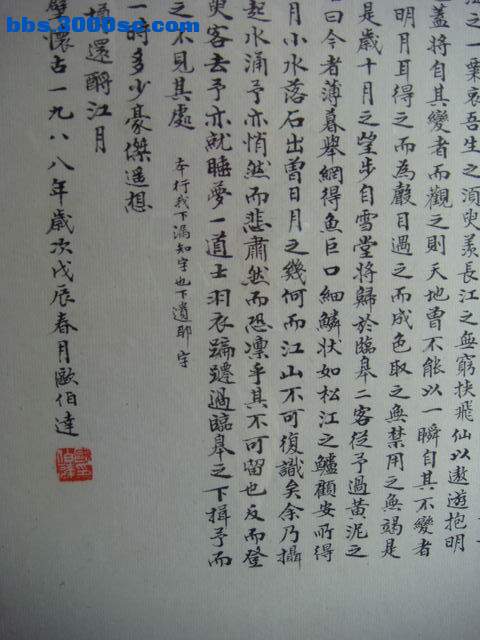 bbs.3000sc.com
江之一粟哀吾生之須臾羨長江之無窮挾飛仙以遨遊抱明
蓋將自其變者而觀之則天地曾不能以一瞬自其不變者
明月耳得之而為聲目遇之而成色取之無禁用之無竭是
是歲十月之望步自雪堂將歸於臨皋二客從予過黃泥之
曰今者薄暮舉網得魚巨口細鱗狀如松江之鱸顧安所得
月小水落石出曾日月之幾何而江山不可復識矣余乃攝
起水涌予亦悄然而悲肅然而恐凜乎其不可留也反而登
臾客去予亦就睡夢一道士羽衣蹁躚過臨皋之下揖予而
之不見其處
本行我下漏知字也下遺耶字
一時多少豪傑遥想
還酹江月
壁懷古一九八八年歲次戊辰春月歐伯達